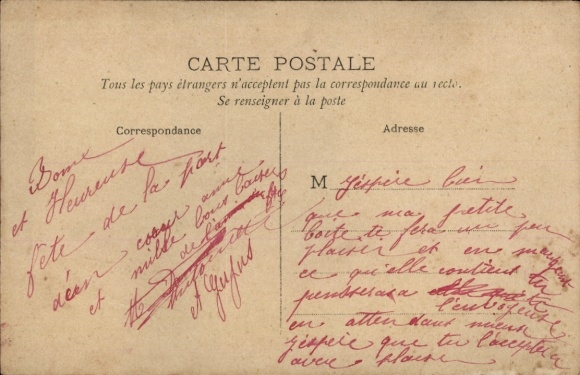 CARTE POSTALE
Tous les pays étrangers n'acceptent pas la correspondance au recto.
Se renseigner à la poste
Correspondance
Adresse
Bonne
et Heureuse
fête de la part
d'un coeur aimé
et mille bons baisers
de
et
M j'éspère bien
que ma petite
boite te fera un peu
plaisir et en mangeant
ce qu'elle contient tu
penseras a
l'envoyeuse
en attendant mieux
j'éspère que tu l'acceptera
avec plaisir